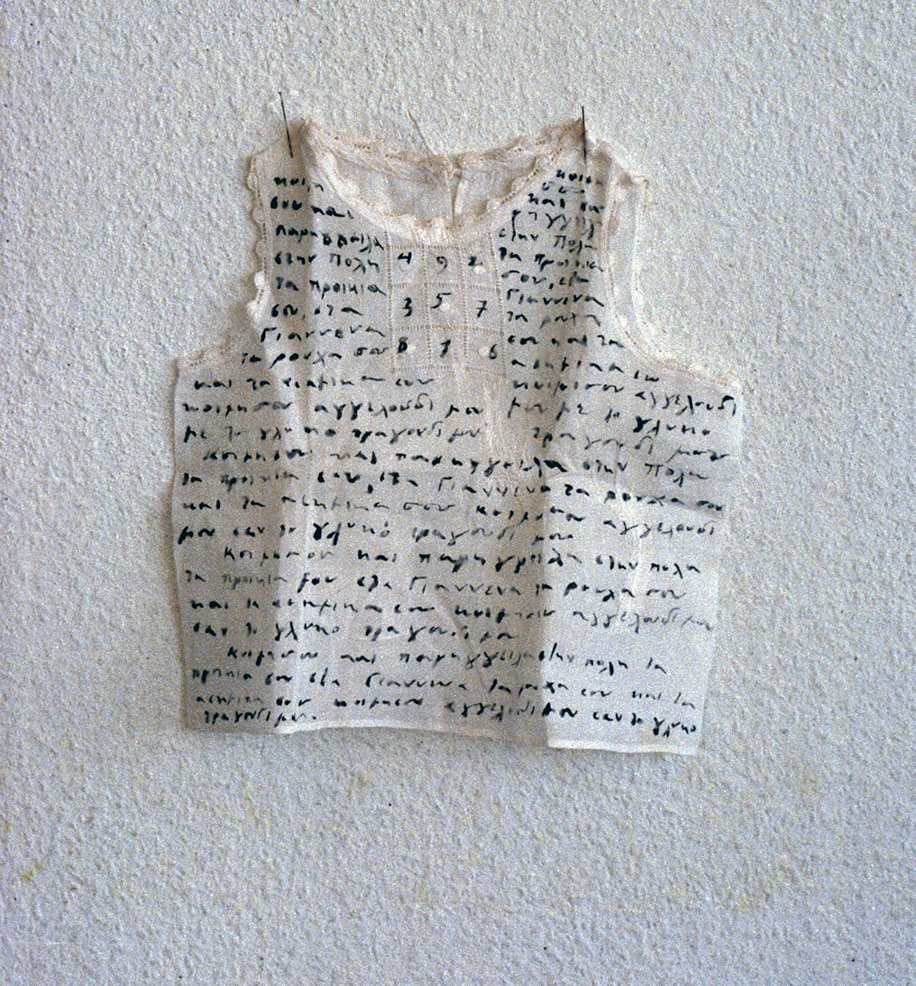 κοιμ
σου και
παραγγειλα
στην Πολη
τα προικια
σου, στα
Γιαννενα
τα ρουχα σου
4 9 2
3 5 7
8 1 6
κοιμ
και σα
στην Πολη
τα προικια
σου, στα
Γιαννενα
τα ρουχα
σου και τα
ασημικα σω
και τα ασημικα σου
κοιμησου αγγελουδι μου
με το γλυκο τραγουδι μου
κοιμησου αγγελουδι
μου με το γλυκο
τραγουδι μου
κοιμησου και παρηγγειλα στην Πολη
τα προικια σου, στα Γιαννενα τα ρουχα σου
και τα ασημικα σου κοιμησου αγγελουδι
μου σαν το γλυκο τραγουδι μου
κοιμησου και παρηγγειλα στην πολη
τα προικια σου στα Γιαννενα τα ρουχα σου
και τα ασημικα σου κοιμησου αγγελουδι μου
σαν το γλυκο τραγουδι μου
κοιμησου και παρηγγειλα στην πολη τα
προικια σου στα Γιαννενα τα ρουχα σου και τα
ασημικα σου κοιμησου αγγελουδι μου σαν το γλυκο
τραγουδι μου.